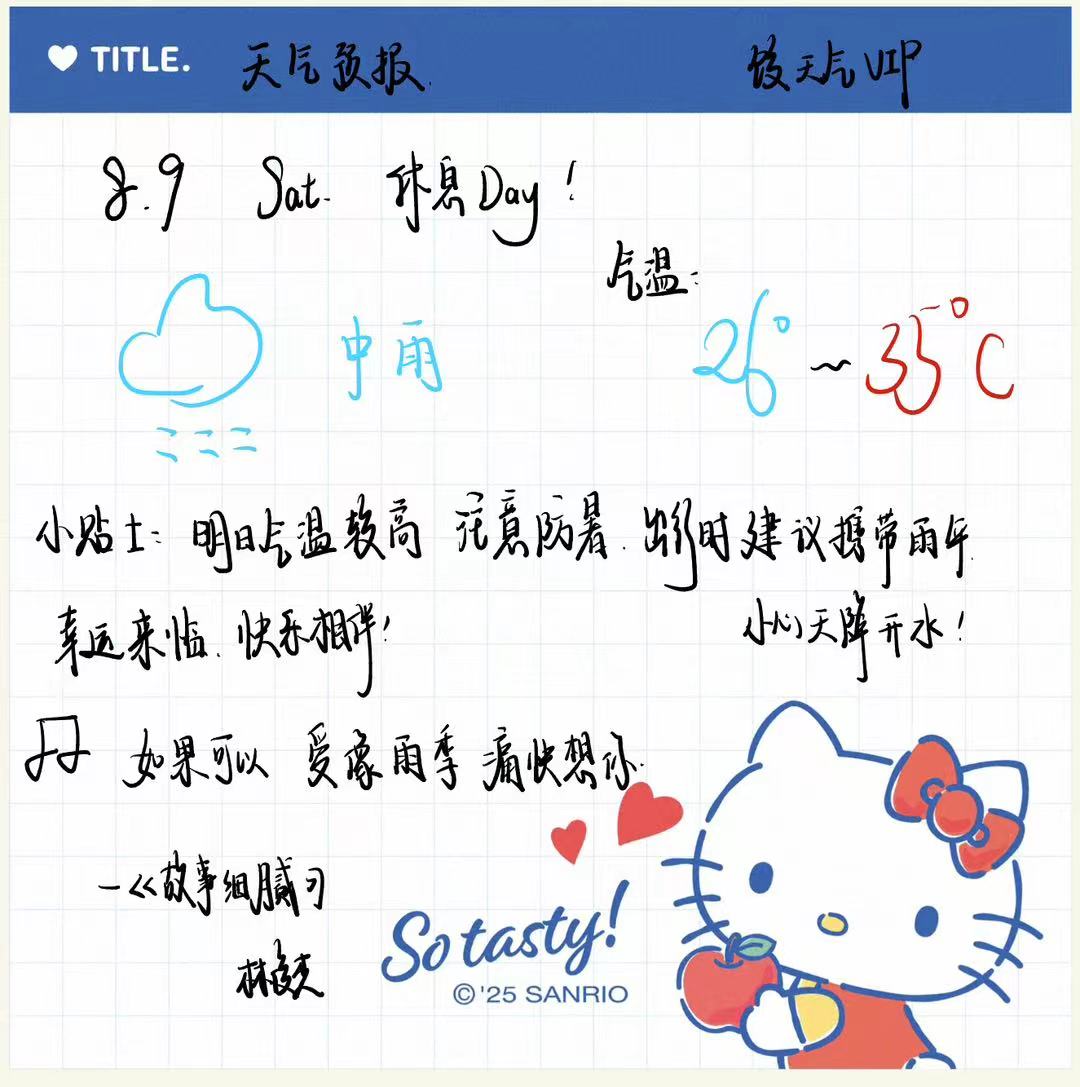 TITLE. 天气预报. 天气VIP
8.9 Sat. 休息Day!
气温:
中雨 26° ~ 35°C
小贴士: 明日气温较高 注意防暑. 出行时建议携带雨伞.
幸运来临. 快乐相伴! 小心天降开水!
如果可以 爱像雨季 痛快想你.
—《故事细腻》
林俊杰
So tasty!
©'25 SANRIO